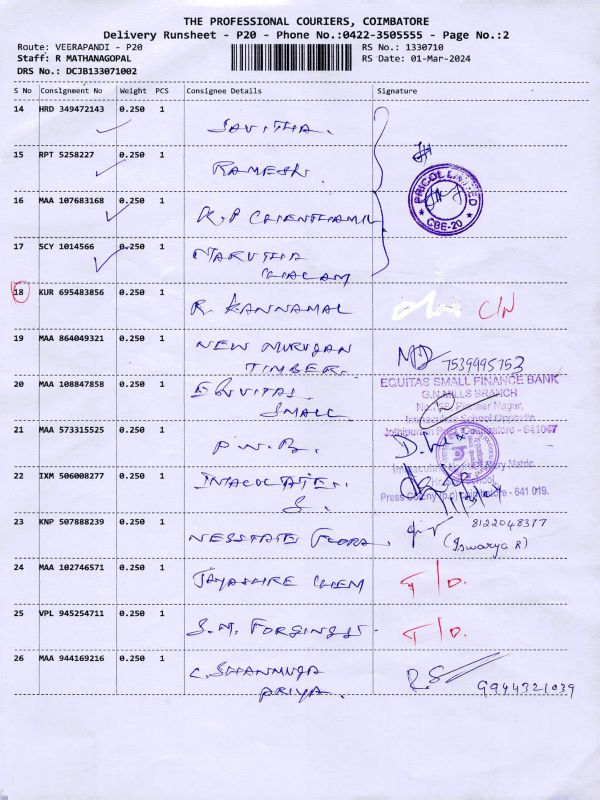 THE PROFESSIONAL COURIERS, COIMBATORE
Delivery Runsheet - P20 - Phone No.:0422-3505555 - Page No.:2
Route: VEERAPANDI - P20 RS No.: 1330710
Staff: R MATHANAGOPAL RS Date: 01-Mar-2024
DRS No.: DCJB133071002
S No Consignment No Weight PCS Consignee Details Signature
14 HRD 349472143 0.250 1
SAVITHA.
15 RPT 5258227 0.250 1
RAMESH.
16 MAA 107683168 0.250 1
K.P CHENTHAMIL
PRICOL LIMITED
CBE-20
17 SCY 1014566 0.250 1
MARUTHA
CHALAM
18 KUR 695483856 0.250 1
R. KANNAMAL C/N
19 MAA 864049321 0.250 1
NEW MURUGAN
TIMBER. 7539995753
20 MAA 108847858 0.250 1
EQUITAS
SMALL
EQUITAS SMALL FINANCE BANK
G.N.MILLS BRANCH
Nagar,
- 641047
21 MAA 573315525 0.250 1
P.N.B.
22 IXM 506008277 0.250 1
S.
Matric.
School,
Press Colony - 641 019.
23 KNP 507888239 0.250 1
FLORA. 8122048377
(Iswarya R)
24 MAA 102746571 0.250 1
JAYASHRE CHEM T/D.
25 VPL 945254711 0.250 1
S.M. FORGINGS - T/D.
26 MAA 944169216 0.250 1
C. SHANMUGA
PRIYA. R.S 9944321039